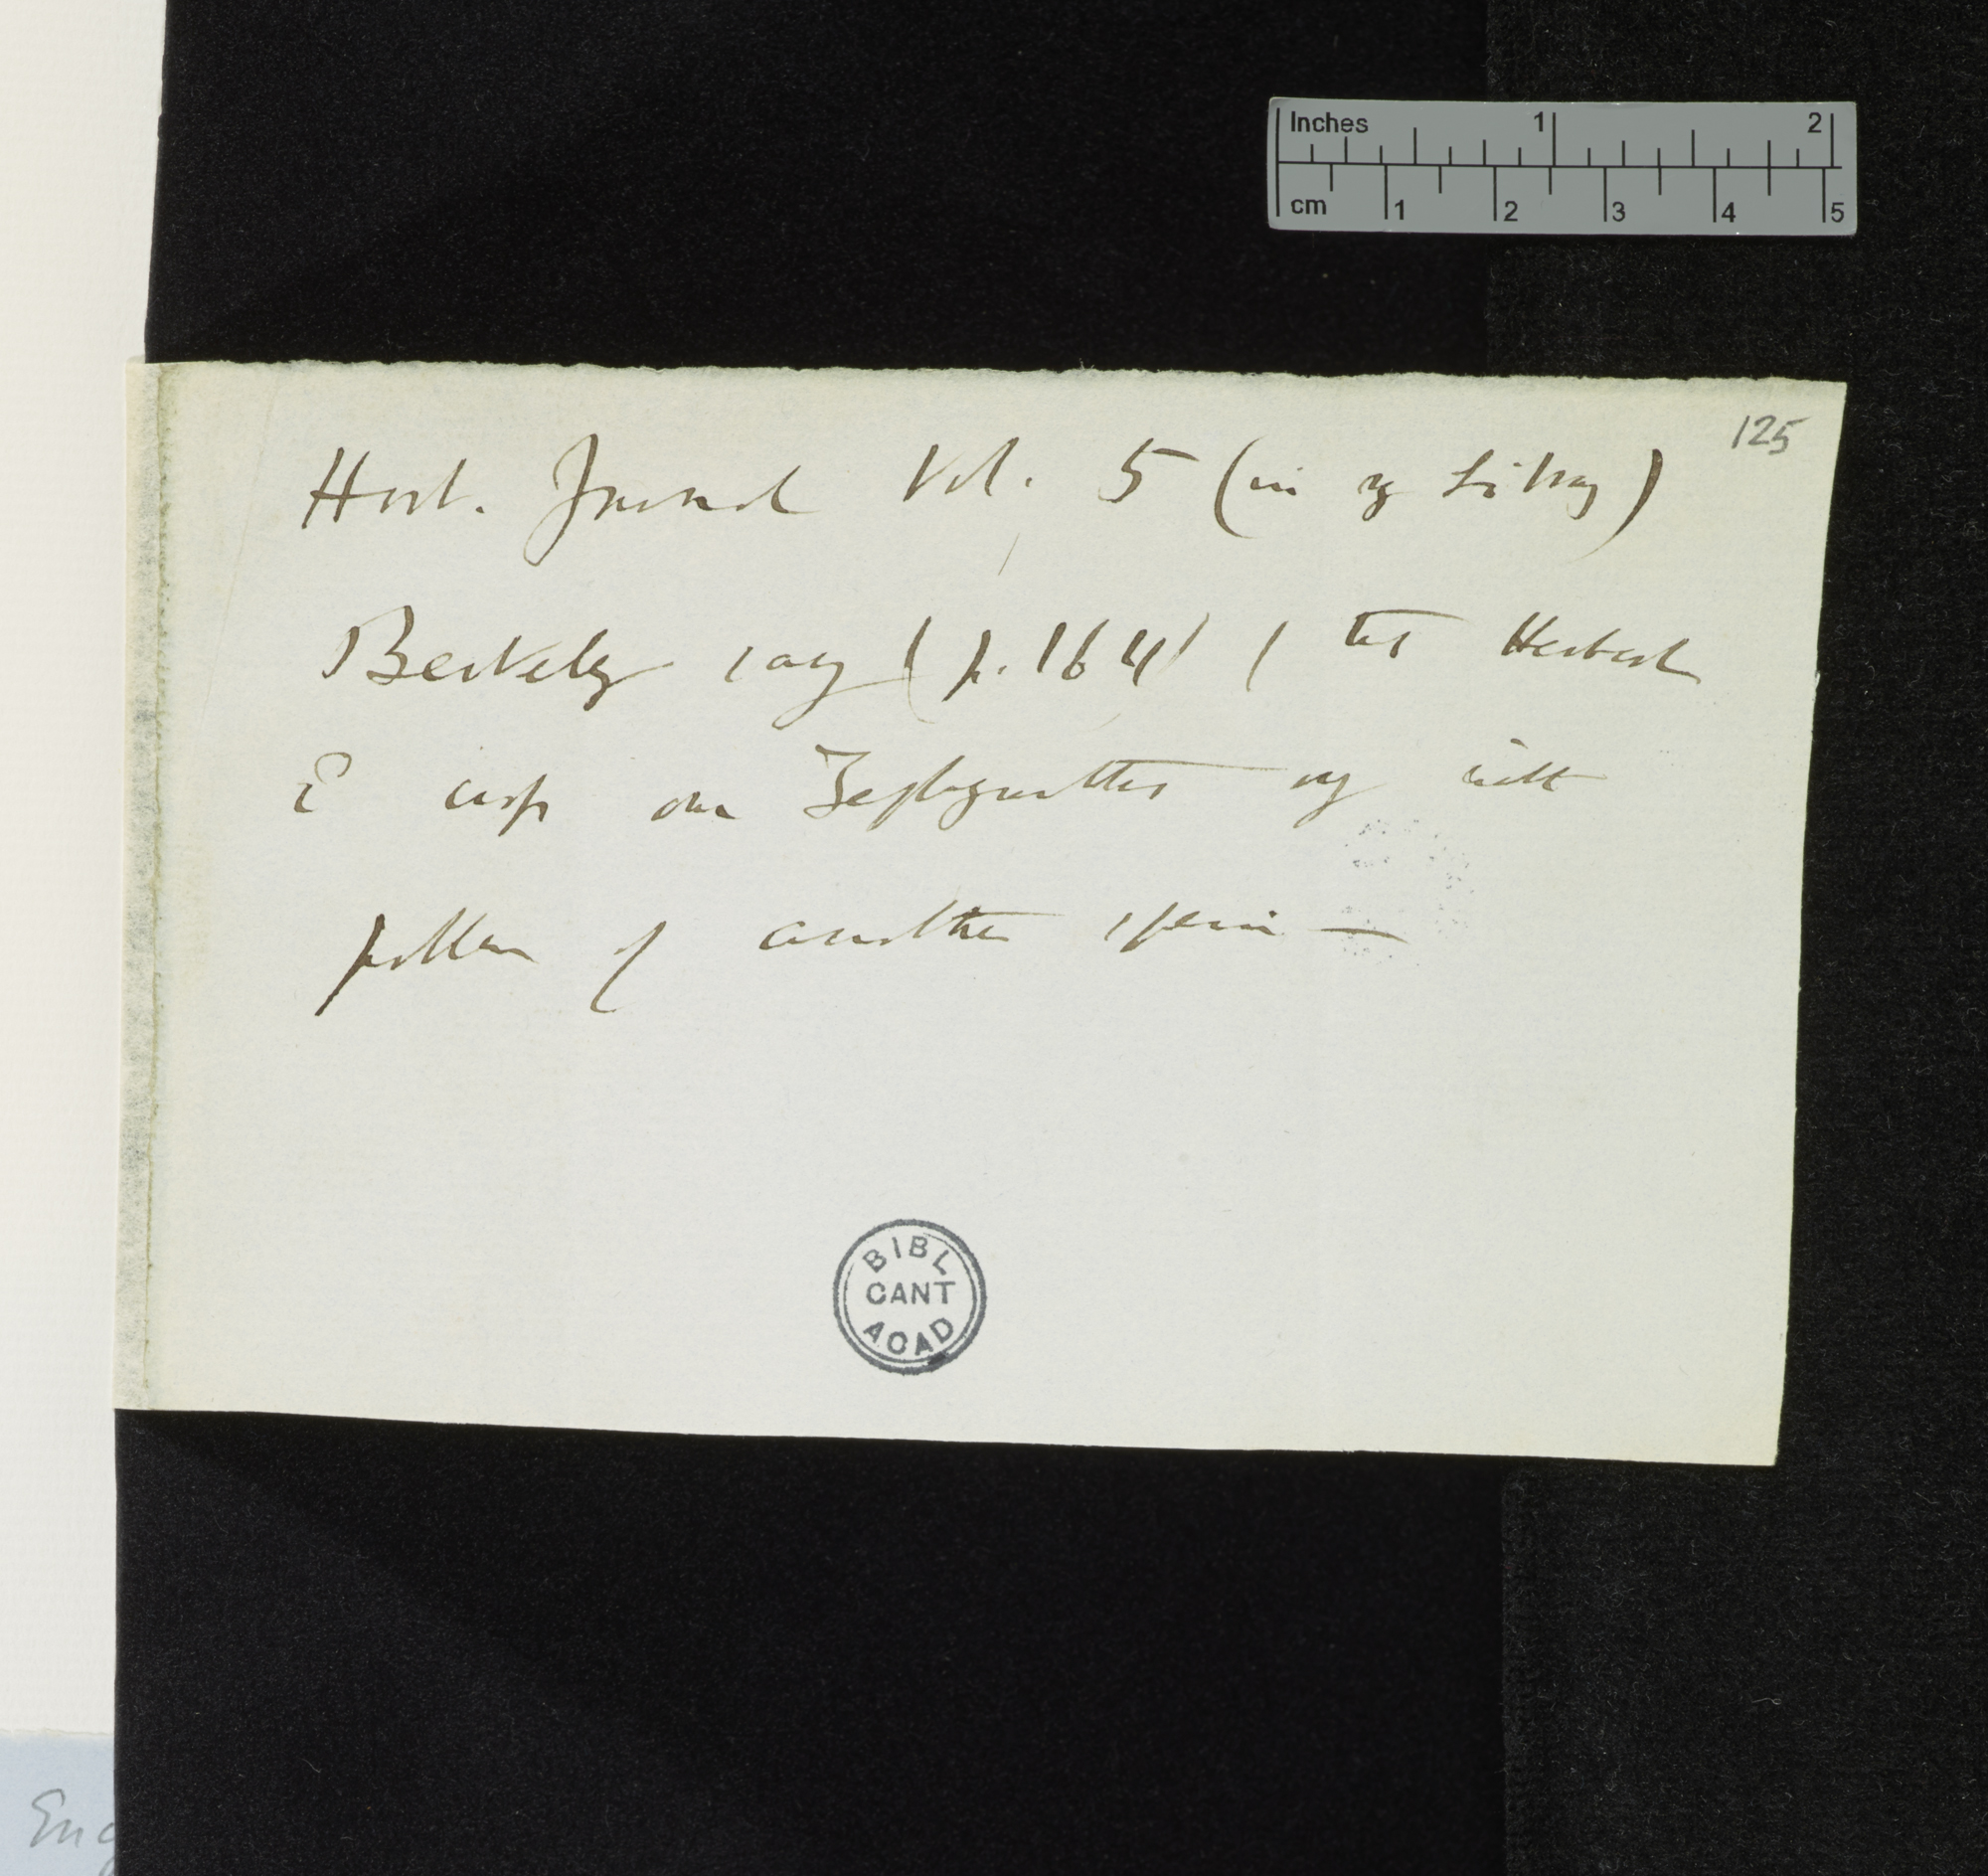 Inches 1 2
cm 1 2 3 4 5
125
Hort. Journal Vol. 5 (in my Library)
Berkeley says (p. 164) that Herbert
on Zephyranthes with
pollen of another species —
BIBL
CANT
ACAD
Eng